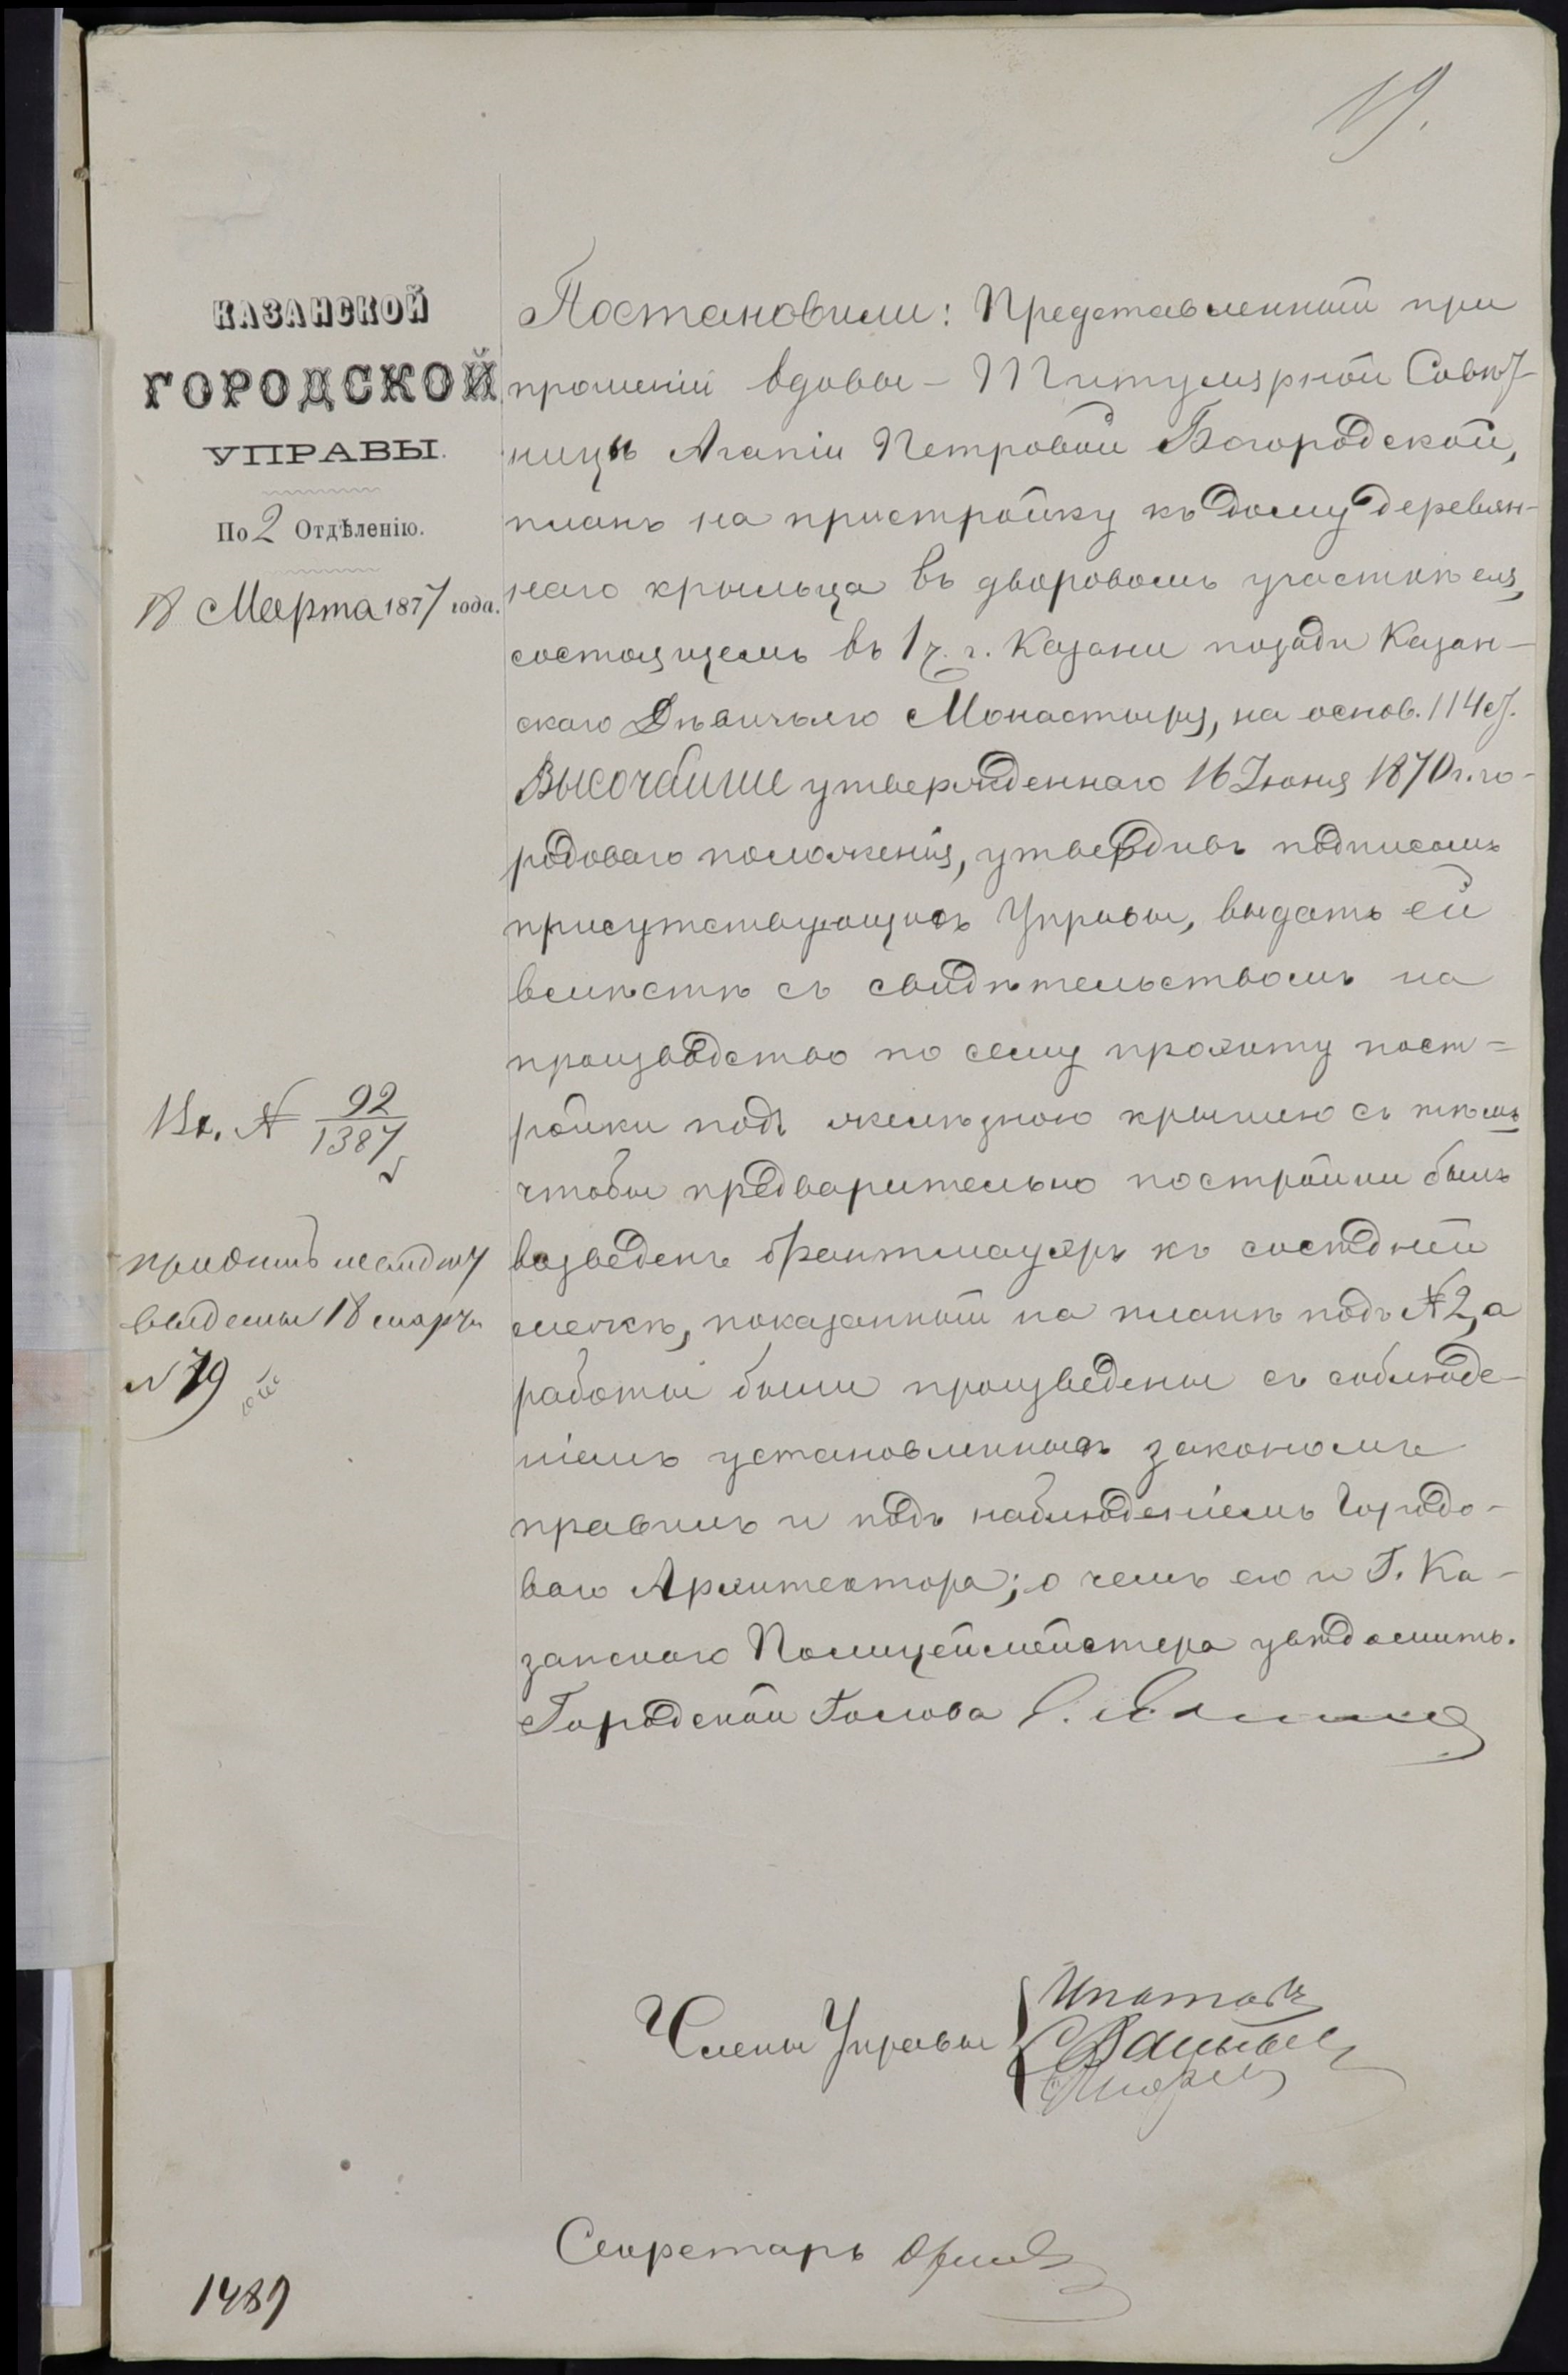 19.
КАЗАНСКОЙ
ГОРОДСКОЙ
УПРАВЫ.
По 2 Отдѣленію.
18 Марта 1877 года.
Вх. № 92/1387
выданы 18 марта
№ 79
1489
Постановили: Представленный при
прошеніи вдовы – Титулярной Совѣт-
ницы Агапіи Петровой Богородской,
планъ на пристройку къ дому деревян-
наго крыльца въ дворовомъ участкѣ ея,
состоящемъ въ 1 ч. г. Казани позади Казан-
скаго Дѣвичьяго Монастыря, на основ. 114 ст.
Высочайше утвержденнаго 16 Іюня 1870 г. го-
родоваго положенія, утвердивъ подписомъ
присутствующихъ Управы, выдать ей
вмѣстѣ съ свидѣтельствомъ на
производство по сему проэкту пост=
ройки подъ желѣзною крышею съ тѣмъ
чтобы предварительно постройки былъ
возведенъ брантмауэръ къ сосѣдней
межѣ, показанный на планѣ подъ № 2, а
работы были произведены съ соблюде-
ніемъ установленныхъ закономъ
правилъ и подъ наблюденіемъ Городо-
ваго Архитектора; о чемъ его и Г. Ка-
занскаго Полицеймейстера увѣдомить.
Городской Голова
Члены Управы
Ипатовъ
Секретарь